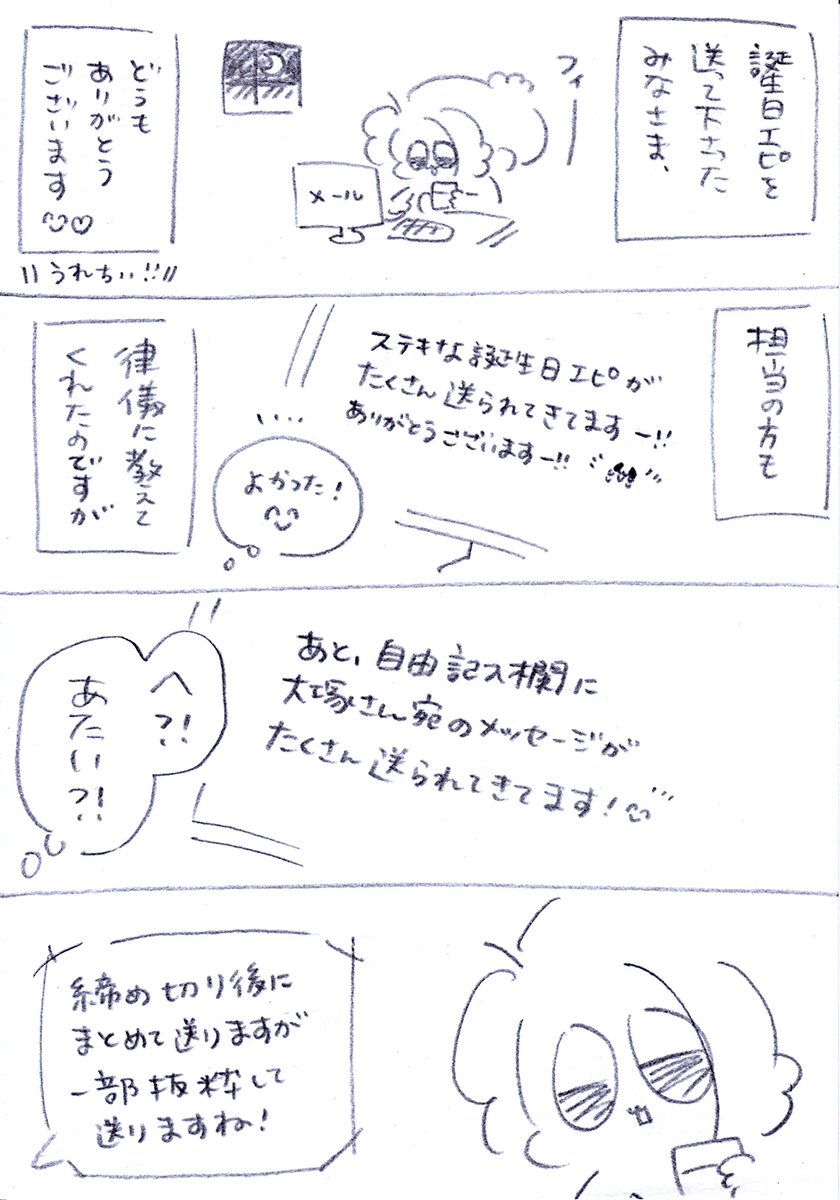 誕生日エピを
送って下さった
みなさま、
フィー
メール
どうも
ありがとう
ございます
うれちぃ!!
担当の方も
ステキな誕生日エピが
たくさん送られてきてますー!!
ありがとうございますー!!
よかった!
律儀に教えて
くれたのですが
あと、自由記入欄に
大塚さん宛のメッセージが
たくさん送られてきてます!
へ?!
あたい?!
締め切り後に
まとめて送りますが
一部抜粋して
送りますね!